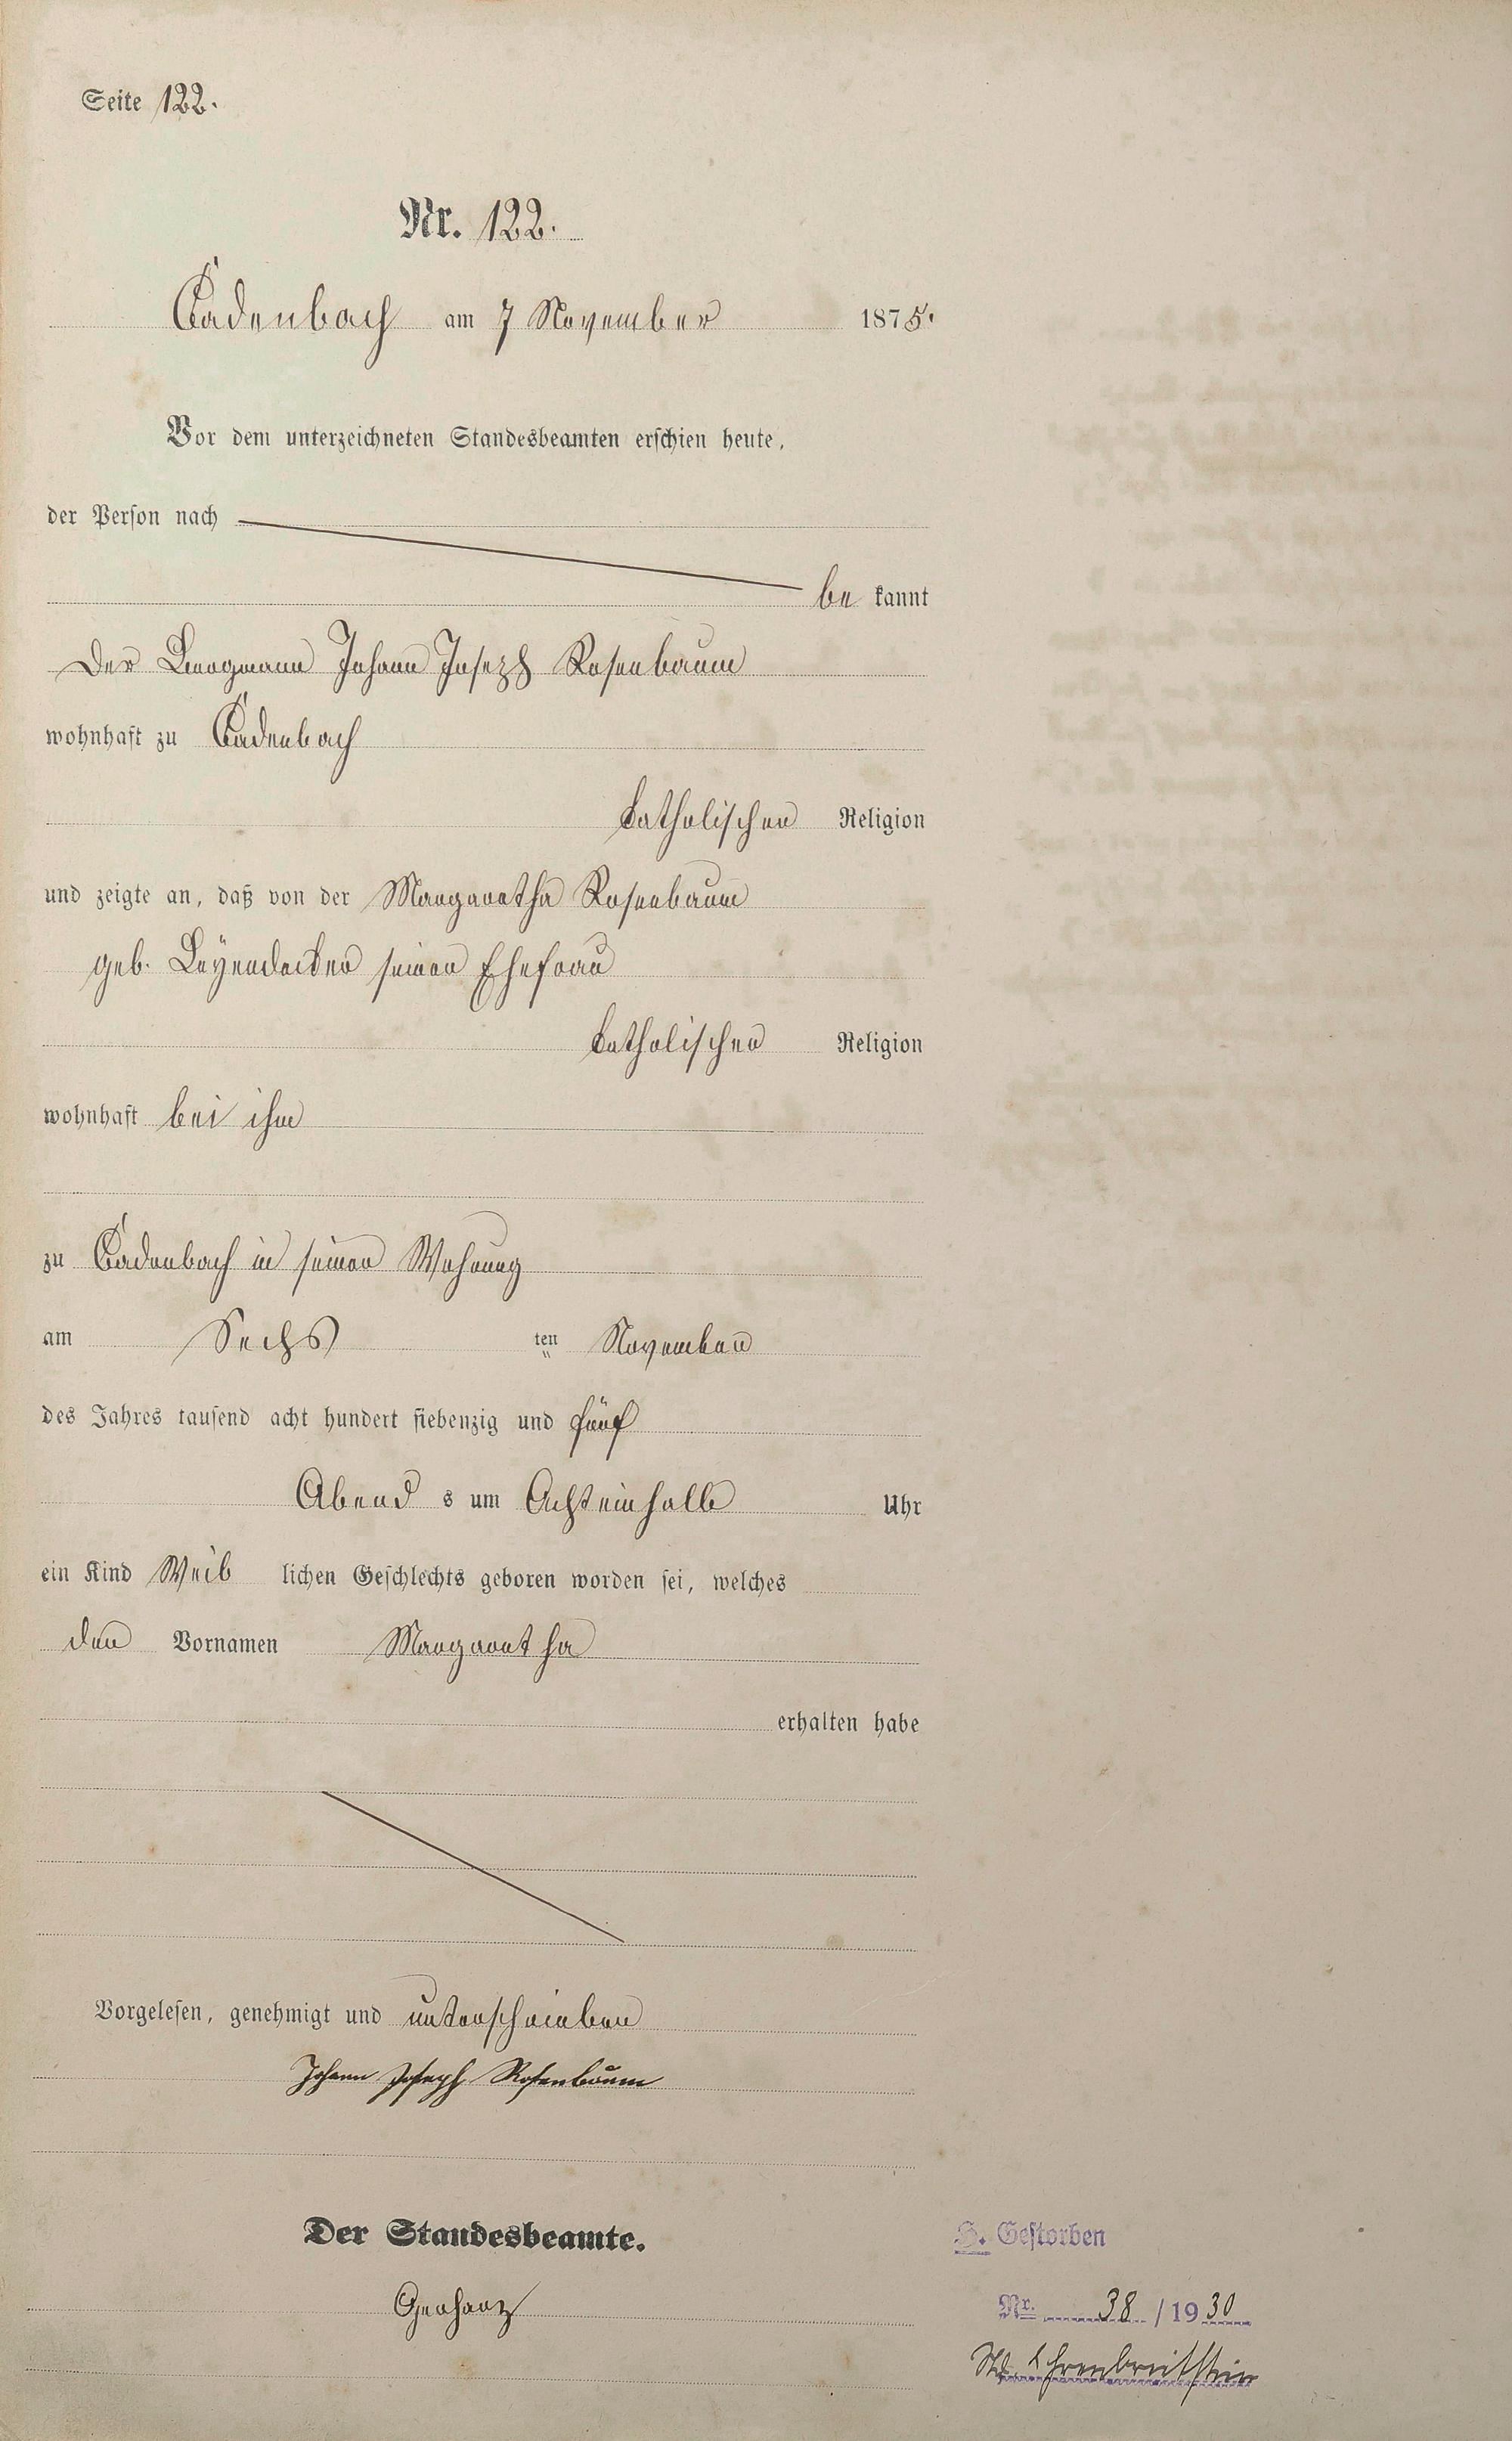 Seite 122.
Nr. 122.
Cadenbach am 7 November 1875.
Vor dem unterzeichneten Standesbeamten erschien heute,
der Person nach
be kannt
Der Bergmann Johann Joseph Rosenbaum
wohnhaft zu Cadenbach
katholischer Religion
und zeigte an, daß von der Margaretha Rosenbaum
geb. Leyendecker seiner Ehefrau
katholischer Religion
wohnhaft bei ihm
zu Cadenbach in seiner Wohnung
am Sechs ten November
des Jahres tausend acht hundert siebenzig und fünf
Abend s um Achteinhalb Uhr
ein Kind Weib lichen Geschlechts geboren worden sei, welches
den Vornamen Margaretha
erhalten habe
Vorgelesen, genehmigt und unterschrieben
Johann Joseph Rosenbaum
Der Standesbeamte.
Gerharz
H. Gestorben
Nr. 38 / 1930
Ehrenbreitstein